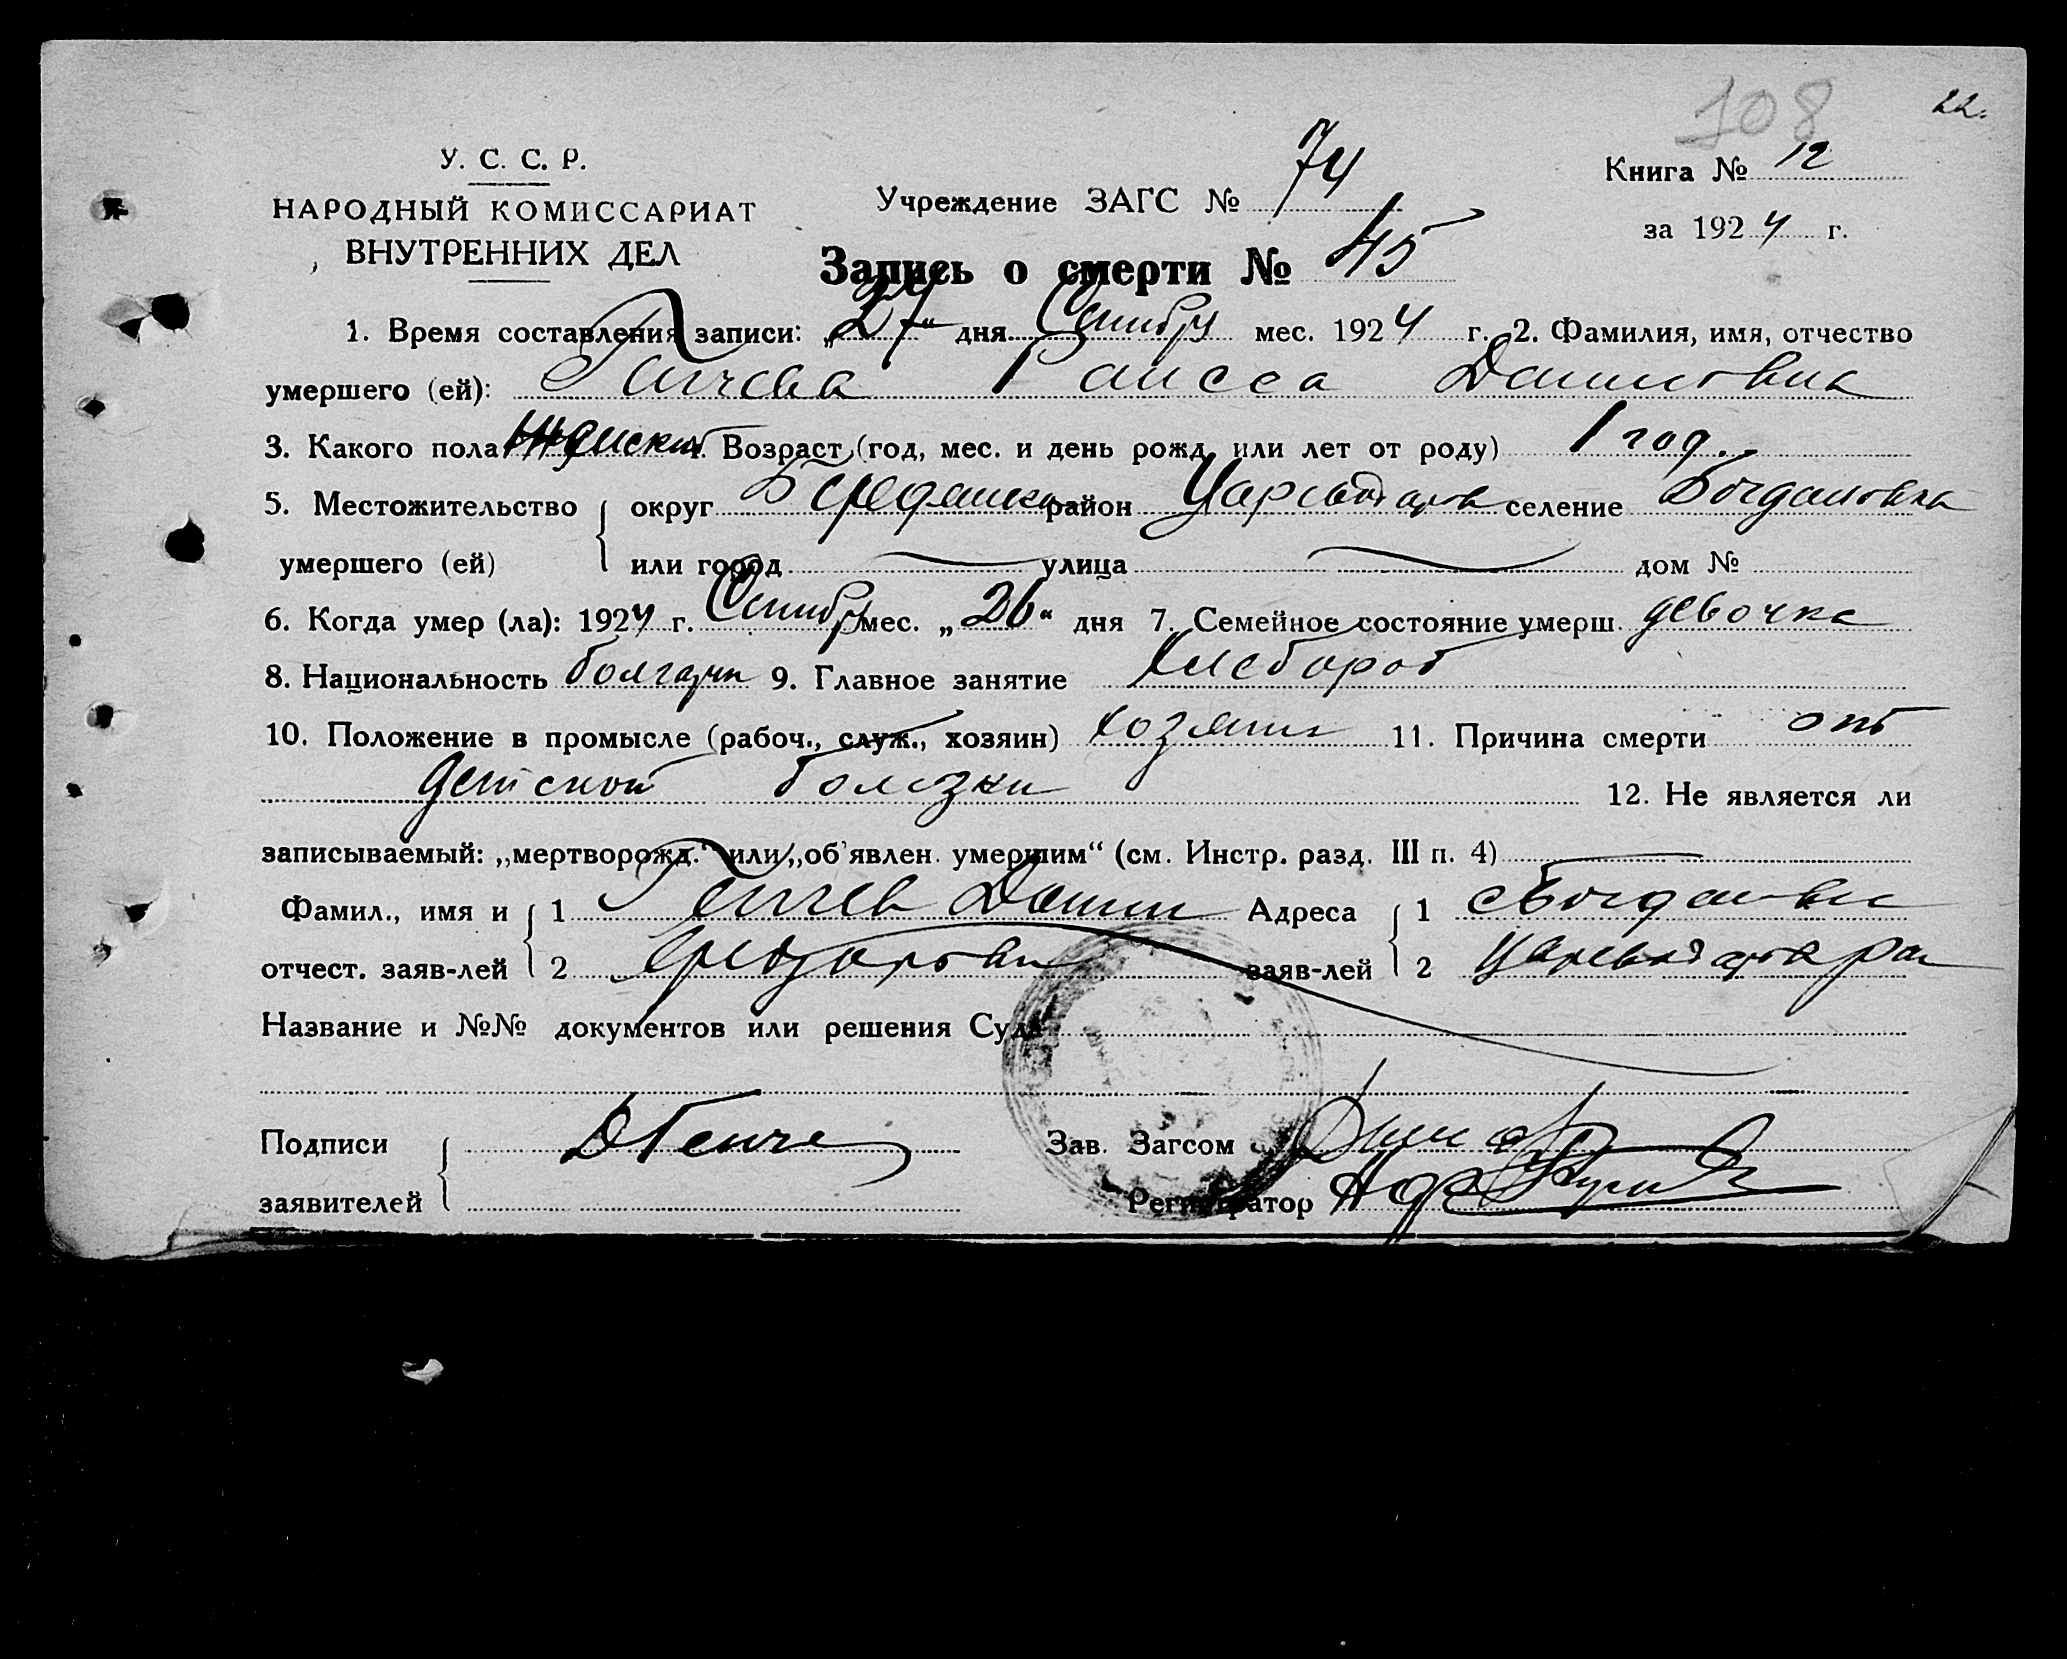 108 22.
У. С. С. Р.
НАРОДНЫЙ КОМИССАРИАТ
ВНУТРЕННИХ ДЕЛ
Учреждение ЗАГС № 74
Книга № 12
за 1924 г.
Запись о смерти № 45
1. Время составления записи: „27“ дня Сентября мес. 1924 г. 2. Фамилия, имя, отчество
умершего (ей): Генчева Раисса Даниловна
3. Какого пола Женский 4. Возраст (год, мес. и день рожд. или лет от роду) 1 год.
5. Местожительство округ Бердянск район Царевод селение Богдановка
умершего (ей) или город улица дом №
6. Когда умер (ла): 1924 г. Сентябр мес. „26“ дня 7. Семейное состояние умерш. девочка
8. Национальность болгарин 9. Главное занятие хлебороб
10. Положение в промысле (рабоч., служ., хозяин) хозяин 11. Причина смерти отъ
детской болезни 12. Не является ли
записываемый: „мертворожд.“ или „об’явлен. умершим“ (см. Инстр. разд. III п. 4)
Фамил., имя и 1 Генчев Данил Адреса 1 с Богдановка
отчест. заяв-лей 2 заяв-лей 2
Название и №№ документов или решения Суда
Подписи ДГенчев Зав. Загсом
заявителей Регистратор